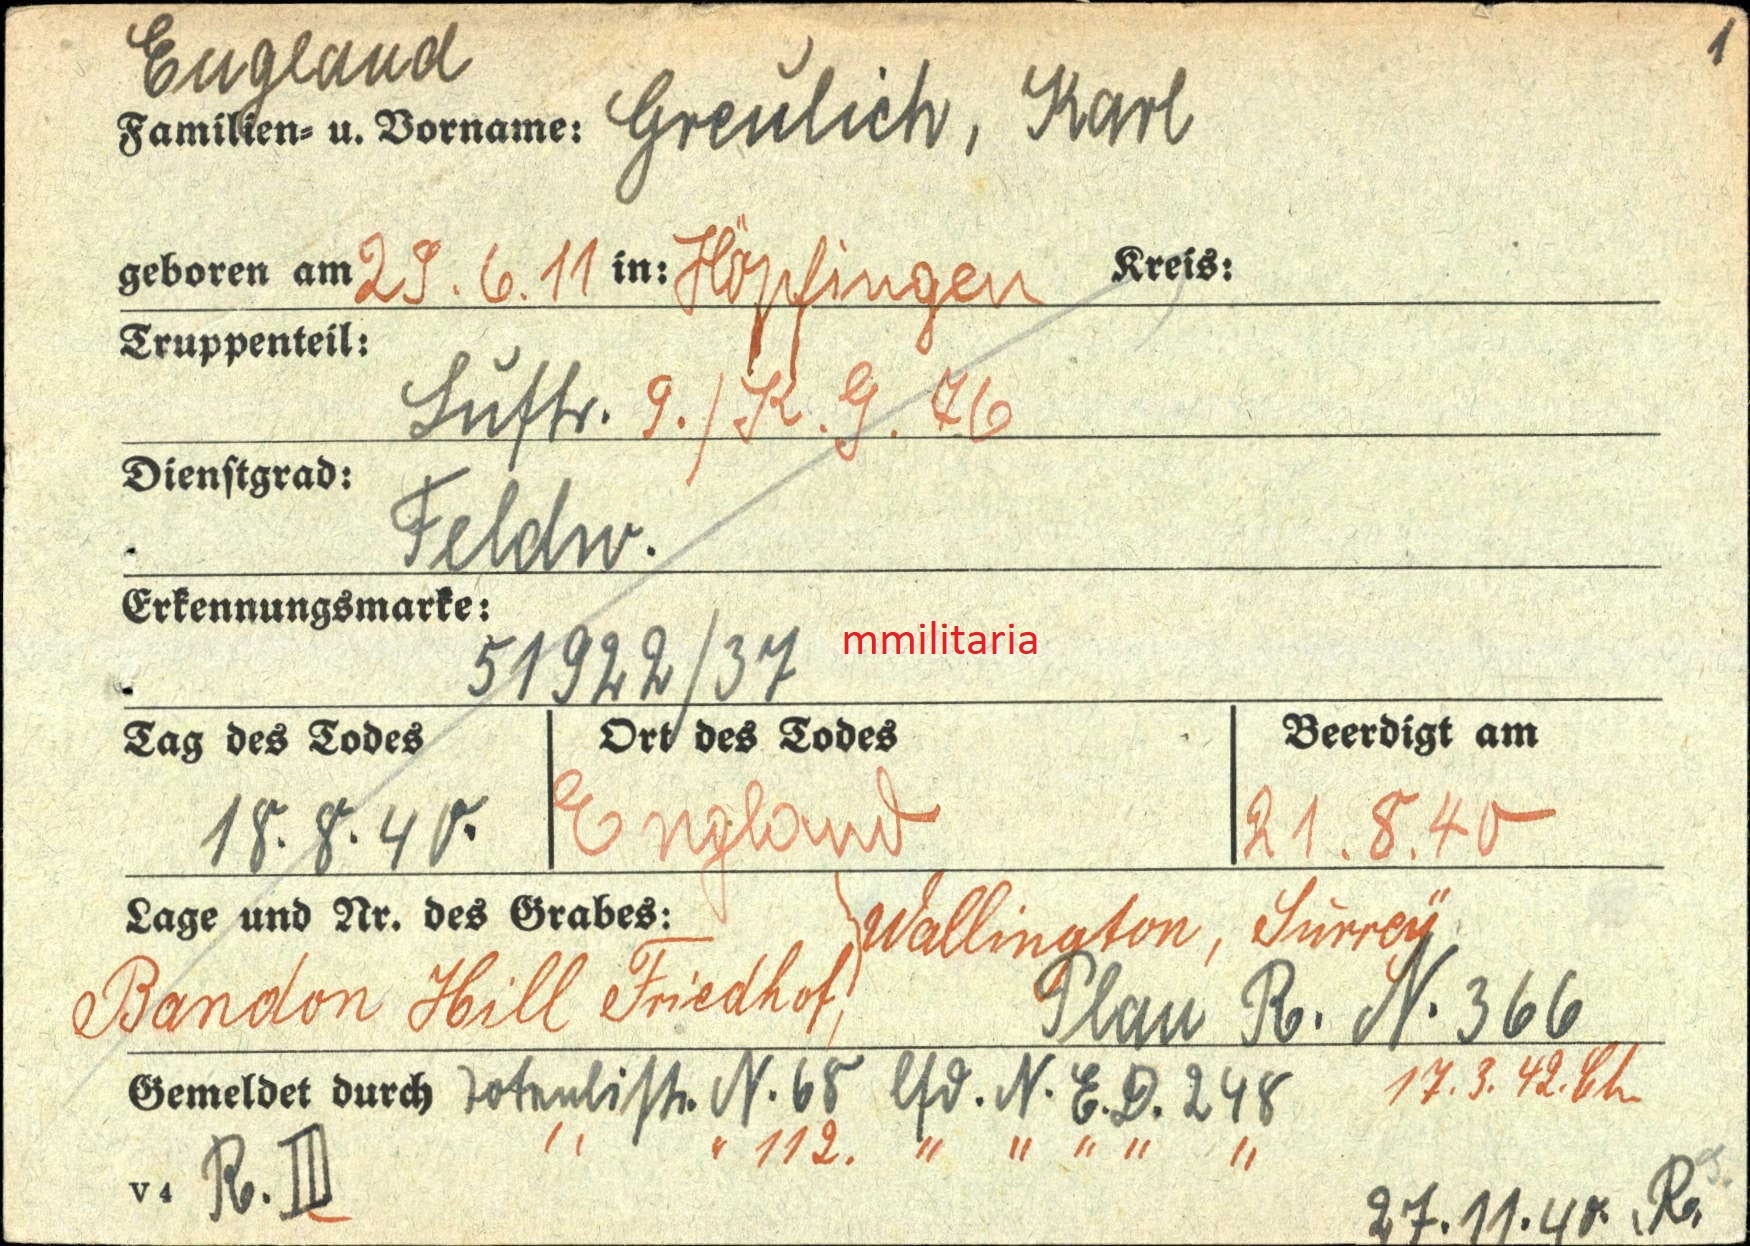 England
1
Familien= u. Vorname: Greulich, Karl
geboren am 29. 6. 11 in: Höpfingen Kreis:
Truppenteil:
Luftw. 9./K. G. 76
Dienstgrad:
Feldw.
Erkennungsmarke:
51922/37
mmilitaria
Tag des Todes Ort des Todes Beerdigt am
18. 8. 40. England 21. 8. 40
Lage und Nr. des Grabes: Wallington, Surrey
Bandon Hill Friedhof, Plan R. N. 366
Gemeldet durch Totenliste. N. 68 lfd. N. E. D. 248 17. 3. 42.
" " 112. " " " " "
V 4 R. III
27. 11. 40. R.